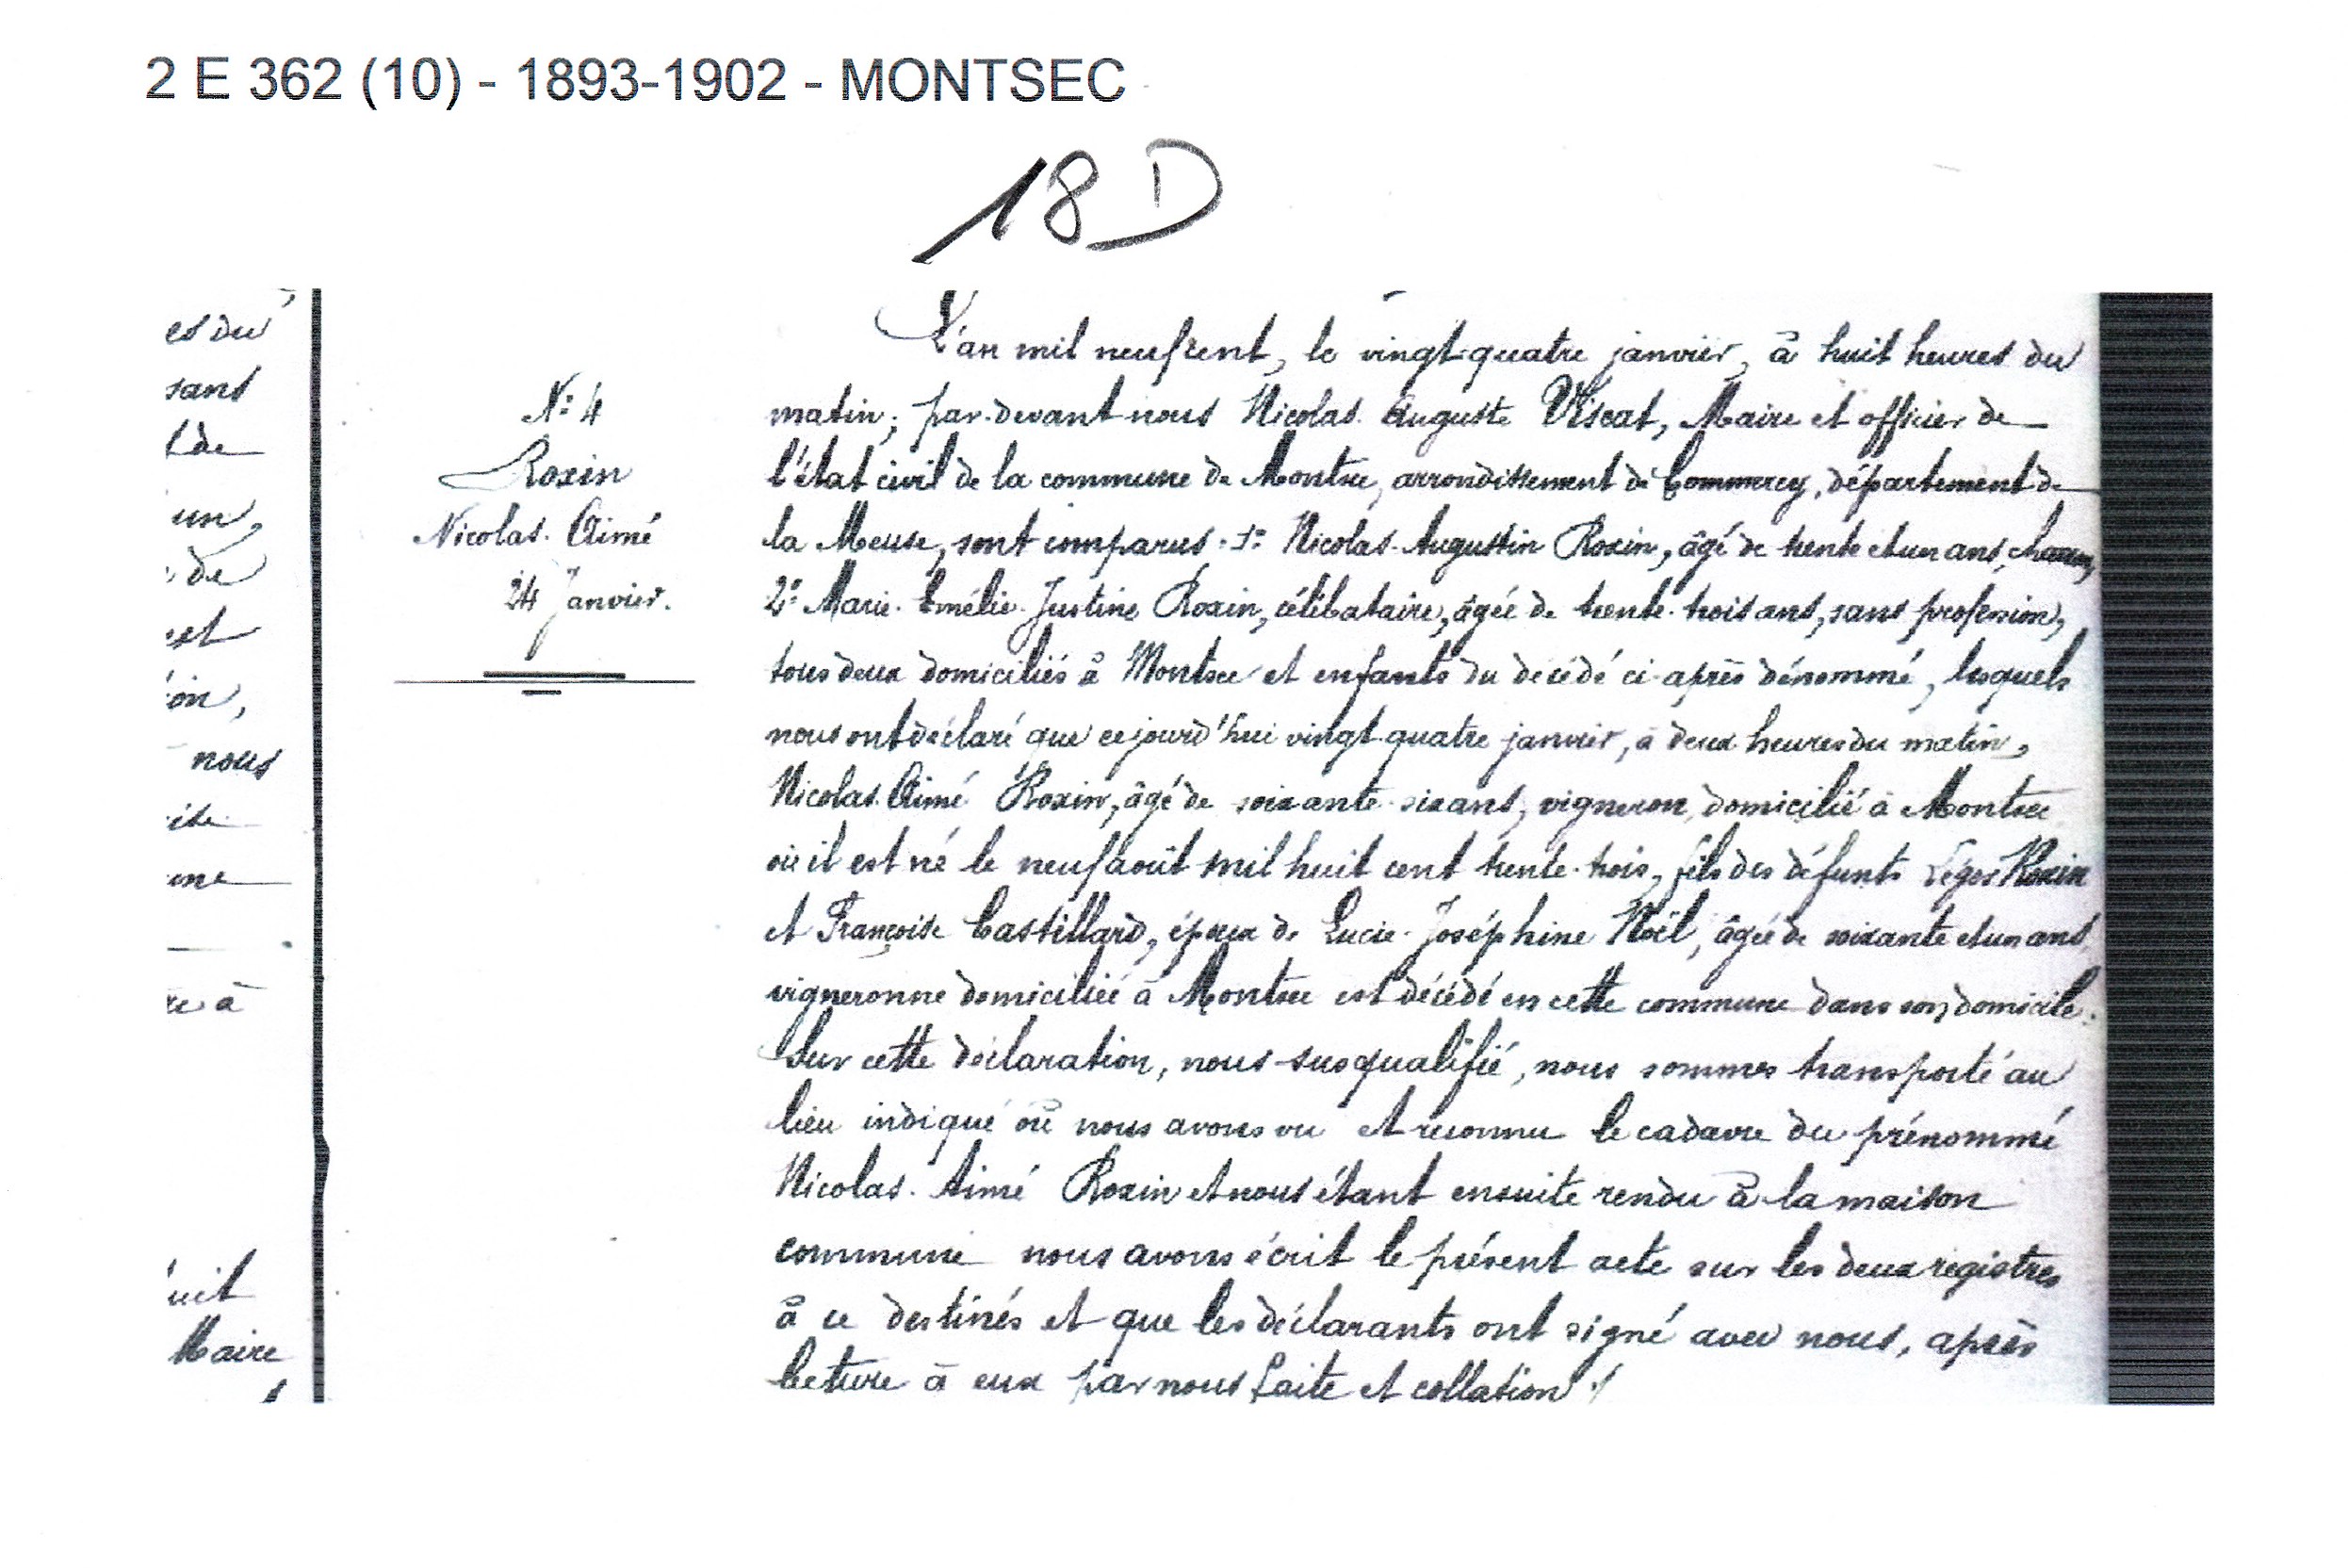 2 E 362 (10) - 1893-1902 - MONTSEC
18 D
es du
sans
t de
un,
de
et
ion,
nous
ite
une
re à
uit
Maire
N° 4
Roxin
Nicolas-Aimé
24 Janvier.
L'an mil neuf cent, le vingt-quatre janvier, à huit heures du
matin; par-devant nous Nicolas-Auguste Viscat, Maire et officier de
l'état civil de la commune de Montsec, arrondissement de Commercy, département de
la Meuse, sont comparus: 1° Nicolas-Augustin Roxin, âgé de trente et un ans,
2° Marie-Emélie-Justine Roxin, célibataire, âgée de trente-trois ans, sans profession,
tous deux domiciliés à Montsec et enfants du décédé ci-après dénommé, lesquels
nous ont déclaré que cejourd'hui vingt-quatre janvier, à deux heures du matin,
Nicolas-Aimé Roxin, âgé de soixante-six ans, vigneron, domicilié à Montsec
où il est né le neuf août mil huit cent trente-trois, fils des défunts Léger Roxin
et Françoise Castillard, époux de Lucie-Joséphine Noël, âgée de soixante et un ans
vigneronne domiciliée à Montsec est décédé en cette commune dans son domicile.
Sur cette déclaration, nous susqualifié, nous sommes transporté au
lieu indiqué où nous avons vu et reconnu le cadavre du prénommé
Nicolas-Aimé Roxin et nous étant ensuite rendu à la maison
commune nous avons écrit le présent acte sur les deux registres
à ce destinés et que les déclarants ont signé avec nous, après
lecture à eux par nous faite et collation ./